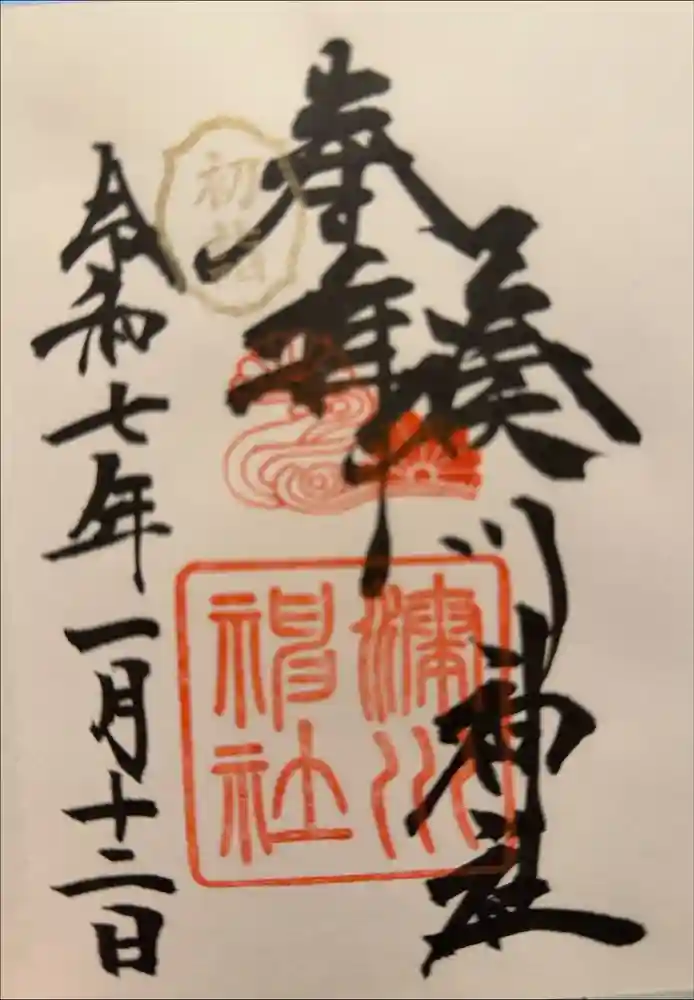 奉拝
湊川神社
初詣
湊川
神社
令和七年一月十二日